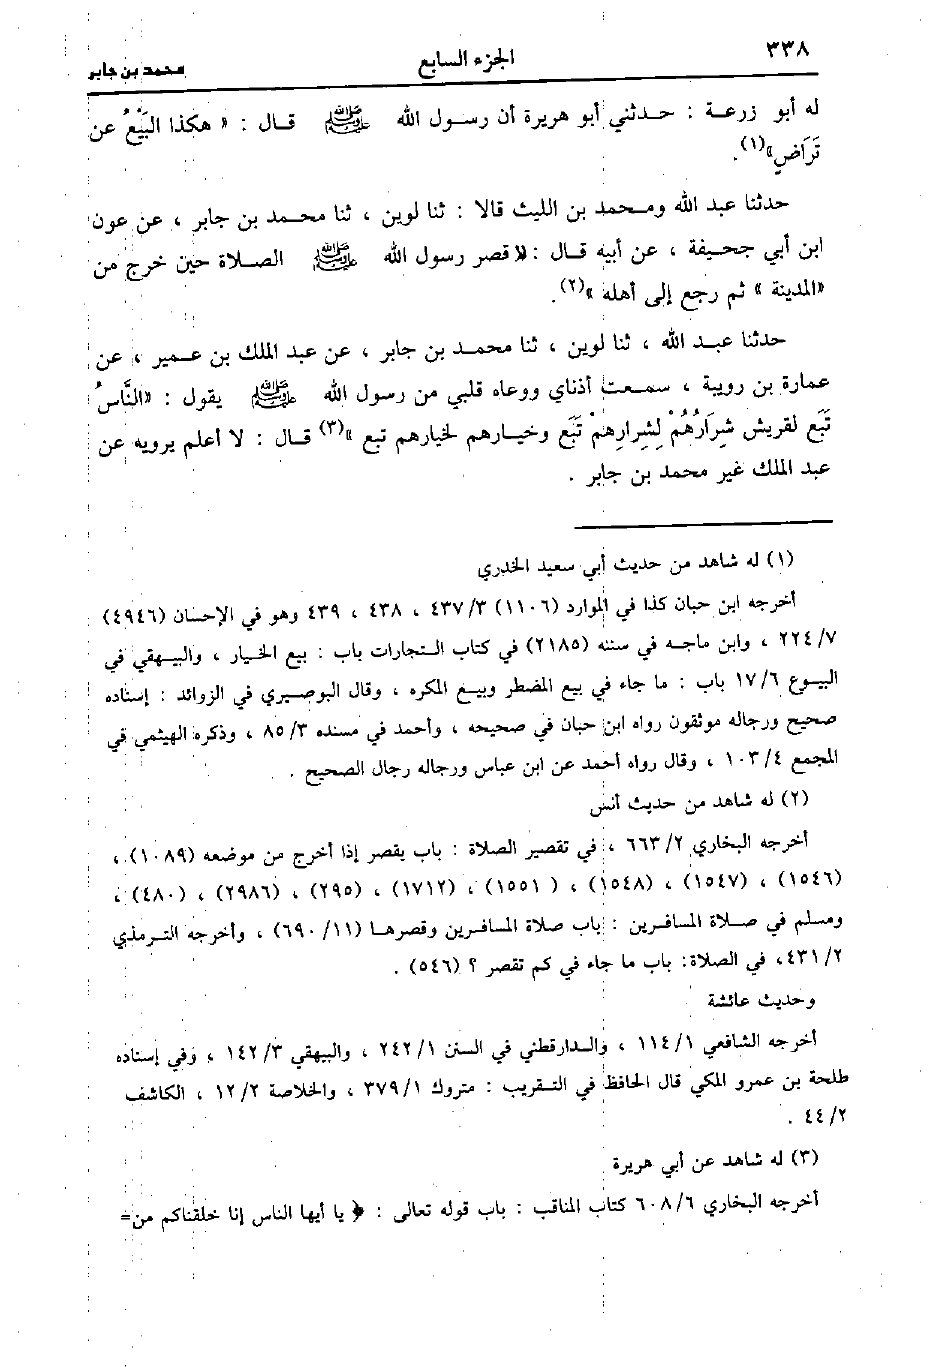 ٣٣٨
الجزء السابع
محمد بن جابر
له أبو زرعة : حدثني أبو هريرة أن رسول الله ﷺ قال : « هكذا البَيْعُ عن
تَرَاضٍ»(١).
حدثنا عبد الله ومحمد بن الليث قالا : ثنا لوين ، ثنا محمد بن جابر ، عن عون
ابن أبي جحيفة ، عن أبيه قال : «قصر رسول الله ﷺ الصلاة حين خرج من
«المدينة » ثم رجع إلى أهله »(٢).
حدثنا عبد الله ، ثنا لوين ، ثنا محمد بن جابر ، عن عبد الملك بن عمير ، عن
عمارة بن رويبة ، سمعت أذناي ووعاه قلبي من رسول الله ﷺ يقول : «النَّاسُ
تَبَع لقريش شِرَارُهُمْ لِشِرارِهِمْ تَبَع وخيارهم لخيارهم تبع »(٣) قال : لا أعلم يرويه عن
عبد الملك غير محمد بن جابر .
(١) له شاهد من حديث أبي سعيد الخدري
أخرجه ابن حبان كذا في الموارد (١١٠٦) ٤٣٧/٣ ، ٤٣٨ ، ٤٣٩ وهو في الإحسان (٤٩٤٦)
٢٢٤/٧ ، وابن ماجه في سننه (٢١٨٥) في كتاب التجارات باب : بيع الخيار ، والبيهقي في
البيوع ١٧/٦ باب : ما جاء في بيع المضطر وبيع المكره ، وقال البوصيري في الزوائد : إسناده
صحيح ورجاله موثقون رواه ابن حبان في صحيحه ، وأحمد في مسنده ٨٥/٣ ، وذكره الهيثمي في
المجمع ١٠٣/٤ ، وقال رواه أحمد عن ابن عباس ورجاله رجال الصحيح .
(٢) له شاهد من حديث أنس
أخرجه البخاري ٦٦٣/٢ ، في تقصير الصلاة : باب يقصر إذا أخرج من موضعه (١٠٨٩) ،
(١٥٤٦) ، (١٥٤٧) ، (١٥٤٨) ، (١٥٥١) ، (١٧١٢) ، (٢٩٥) ، (٢٩٨٦) ، (٤٨٠) ،
ومسلم في صلاة المسافرين : باب صلاة المسافرين وقصرها (٦٩٠/١١) ، وأخرجه الترمذي
٤٣١/٢، في الصلاة: باب ما جاء في كم تقصر ؟ (٥٤٦) .
وحديث عائشة
أخرجه الشافعي ١١٤/١ ، والدارقطني في السنن ٢٤٢/١ ، والبيهقي ١٤٢/٣ ، وفي إسناده
طلحة بن عمرو المكي قال الحافظ في التقريب : متروك ٣٧٩/١ ، والخلاصة ١٢/٢ ، الكاشف
٤٤/٢ .
(٣) له شاهد عن أبي هريرة
أخرجه البخاري ٦٠٨/٦ كتاب المناقب : باب قوله تعالى : ﴿ يا أيها الناس إنا خلقناكم من=